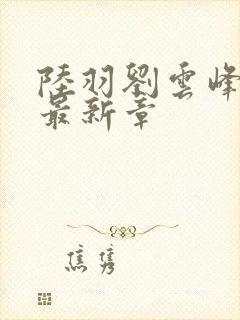 陸羽劉雲峰
最新章
焦隽